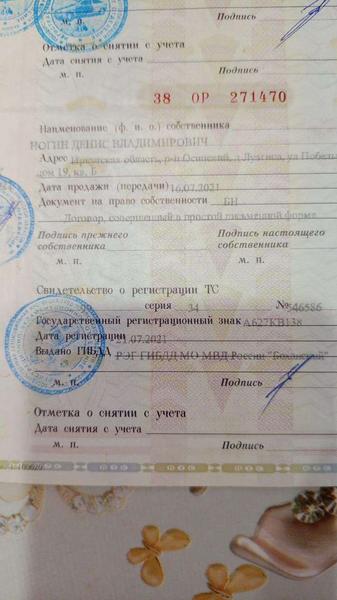 М. П. Подпись
Отметка о снятии с учета
Дата снятия с учета
м. п. Подпись
38 ОР 271470
Наименование (ф. и. о.) собственника
НОГИН ДЕНИС ВЛАДИМИРОВИЧ
Адрес Иркутская область, р-н Осинский, д Лузгина, ул Победы
дом 19, кв. Б
Дата продажи (передачи) 16.07.2021
Документ на право собственности БН
Договор, совершенный в простой письменной форме
Подпись прежнего Подпись настоящего
собственника собственника
м. п. м. п.
Свидетельство о регистрации ТС
99 серия 34 № 546586
Государственный регистрационный знак А627КВ138
Дата регистрации 21.07.2021
Выдано ГИБДД РЭГ ГИБДД МО МВД России "Боханский"
м. п. Подпись
Отметка о снятии с учета
Дата снятия с учета
м. п. Подпись